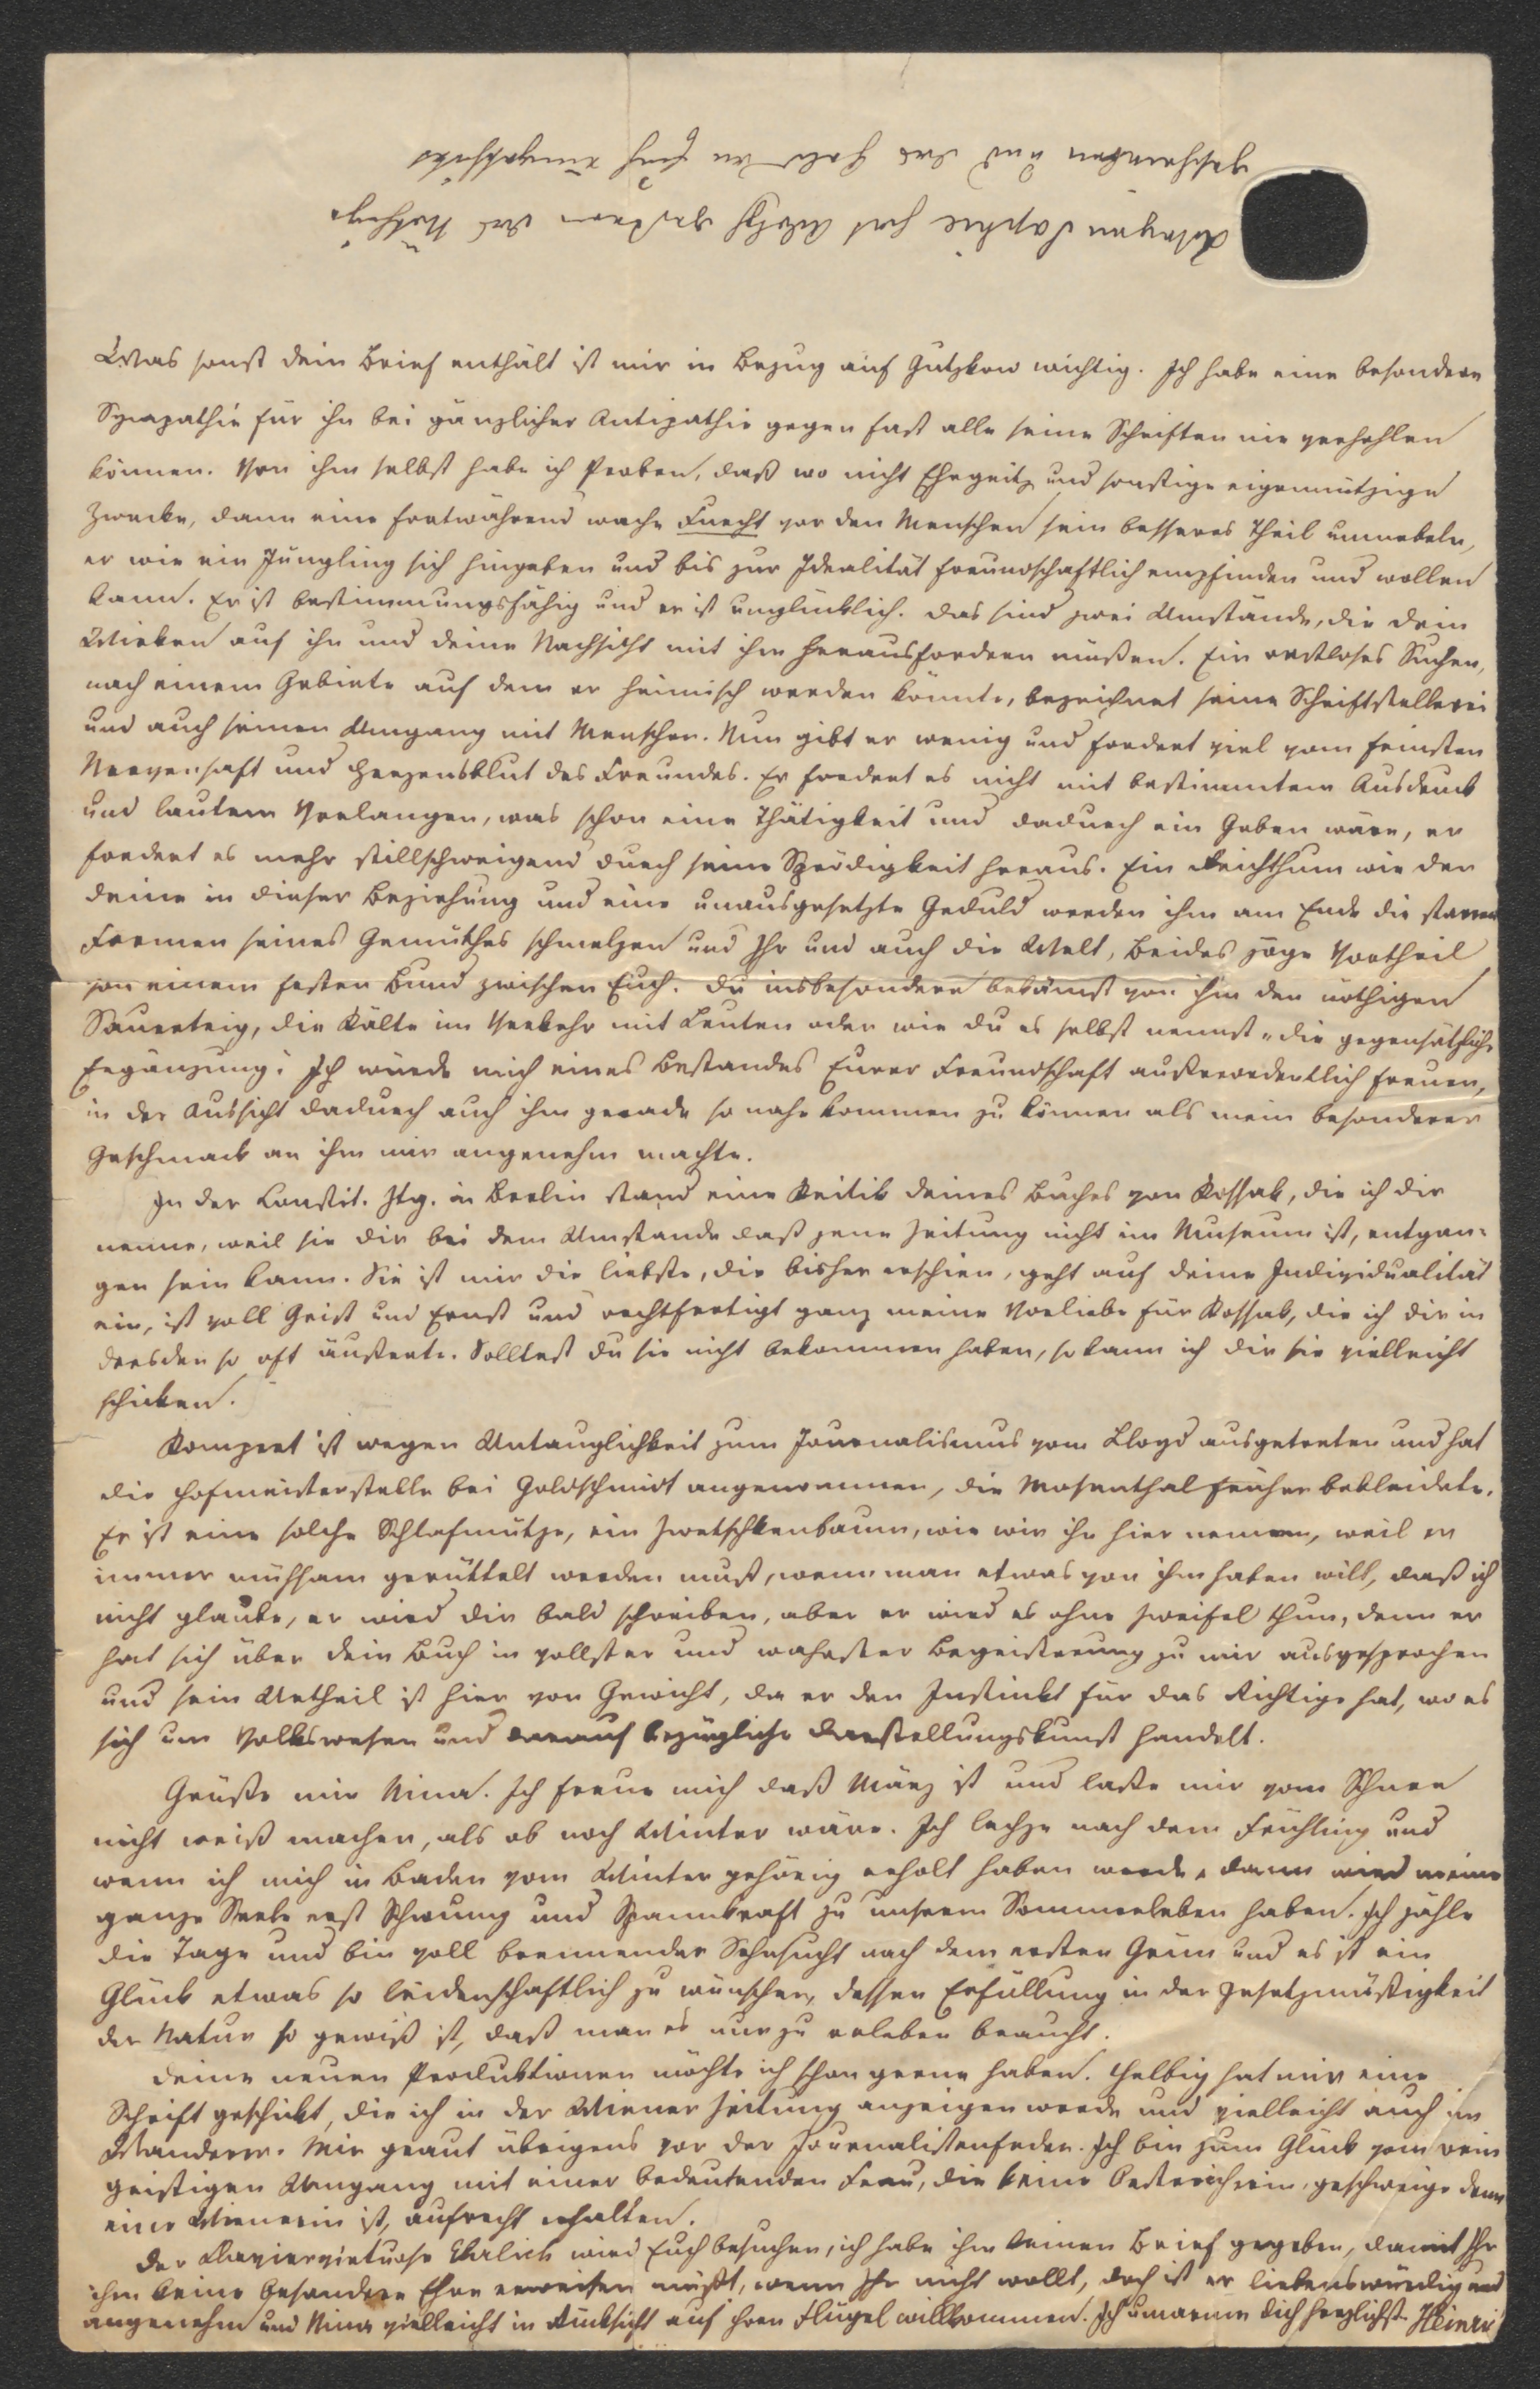 Wegen Sophie hat Adolf gestern das Nöthige
geschrieben und das Geld an Euch
Was sonst dein Brief enthält ist mir in Bezug auf Gutzkow wichtig. Ich habe eine besondere
Sympathie für ihn bei gänzlicher Antipathie gegen fast alle seine Schriften nie verhehlen
können. Von ihm selbst habe ich Proben, daß wo nicht Ehrgeitz und sonstige eigennützige
Zwecke, dann eine fortwährend wache Furcht vor den Menschen sein besseres Theil umnebeln,
er wie ein Jüngling sich hingeben und bis zur Idealität freundschaftlich empfinden und wollen
kann. Er ist bestimmungsfähig und er ist unglücklich. Das sind zwei Umstände, die dein
Wirken auf ihn und deine Nachsicht mit ihm herausfordern müßen. Ein rastloses Suchen,
nach einem Gebiete auf dem er heimisch werden könnte, bezeichnet seine Schriftstellerei
und auch seinen Umgang mit Menschen. Nun gibt er wenig und fordert viel vom feinsten
Nervensaft und Herzensblut des Freundes. Er fordert es nicht mit bestimmtem Ausdruck
und lautem Verlangen, was schon eine Thätigkeit und dadurch ein Geben wäre, er
fordert es mehr stillschweigend durch seine Sprödigkeit heraus. Ein Reichthum wie der
deine in dieser Beziehung und eine unausgesetzte Geduld werden ihm am Ende die starren
Formen seines Gemüthes schmelzen und Ihr und auch die Welt, Beides zöge Vortheil
von einem festen Bund zwischen Euch. Du insbesondere bekämst von ihm den nöthigen
Sauerteig, die Kälte im Verkehr mit Leuten oder wie du es selbst nennst „die gegensätzliche
Ergänzung“. Ich würde mich eines Bestandes Eurer Freundschaft außerordentlich freuen,
in der Aussicht dadurch auch ihm gerade so nahe kommen zu können als mein besonderer
Geschmack an ihm mir angenehm machte.
In der Constit. Ztg. in Berlin stand eine Kritik deines Buches von Kossak, die ich dir
nenne, weil sie dir bei dem Umstande daß jene Zeitung nicht im Museum ist, entgan-
gen sein kann. Sie ist mir die liebste, die bisher erschien, geht auf deine Individualität
ein, ist voll Geist und Ernst und rechtfertigt ganz meine Vorliebe für Kossak, die ich dir in
Dresden so oft äußerte. Solltest du sie nicht bekommen haben, so kann ich dir sie vielleicht
schicken.
Kompert ist wegen Untauglichkeit zum Journalismus vom Lloyd ausgetreten und hat
die Hofmeisterstelle bei Goldschmidt angenommen, die Mosenthal früher bekleidete.
Er ist eine solche Schlafmütze, ein Zwetschkenbaum, wie wir ihn hier nennen, weil er
immer mühsam gerüttelt werden muß, wenn man etwas von ihm haben will, daß ich
nicht glaube, er wird dir bald schreiben, aber er wird es ohne Zweifel thun, denn er
hat sich über dein Buch in vollster und wahrster Begeisterung zu mir ausgesprochen
und sein Urtheil ist hier von Gewicht, da er den Instinkt für das Richtige hat, wo es
sich um Volkswesen und darauf bezügliche Darstellungskunst handelt.
Grüße mir Nina. Ich freue mich daß März ist und laße mir vom Schnee
nicht weiß machen, als ob noch Winter wäre. Ich lechze nach dem Frühling und
wenn ich mich in Baden vom Winter gehörig erholt haben werde, dann wird meine
ganze Seele erst Schwung und Spannkraft zu unserem Sommerleben haben. Ich zähle
die Tage und bin voll brennender Sehnsucht nach dem ersten Grün und es ist ein
Glück etwas so leidenschaftlich zu wünschen, dessen Erfüllung in der Gesetzmäßigkeit
der Natur so gewiß ist, daß man es nur zu erleben braucht.
Deine neuen Produktionen möchte ich schon gerne haben. Helbig hat mir eine
Schrift geschickt, die ich in der Wiener Zeitung anzeigen werde und vielleicht auch im
Wanderer. Mir graut übrigens vor der Journalistenfeder. Ich bin zum Glück vom rein
geistigen Umgang mit einer bedeutenden Frau, die keine Oesterreicherin, geschweige denn
eine Wienerin ist, aufrecht erhalten.
Der Claviervirtuose Ehrlich wird Euch besuchen, ich habe ihm keinen Brief gegeben, damit Ihr
ihm keine besondere Ehre erweisen müßt, wenn Ihr nicht wollt, doch ist er liebenswürdig und
angenehm und Nina vielleicht in Rücksicht auf ihren Flügel willkommen. Ich umarme dich herzlichst. Heinri